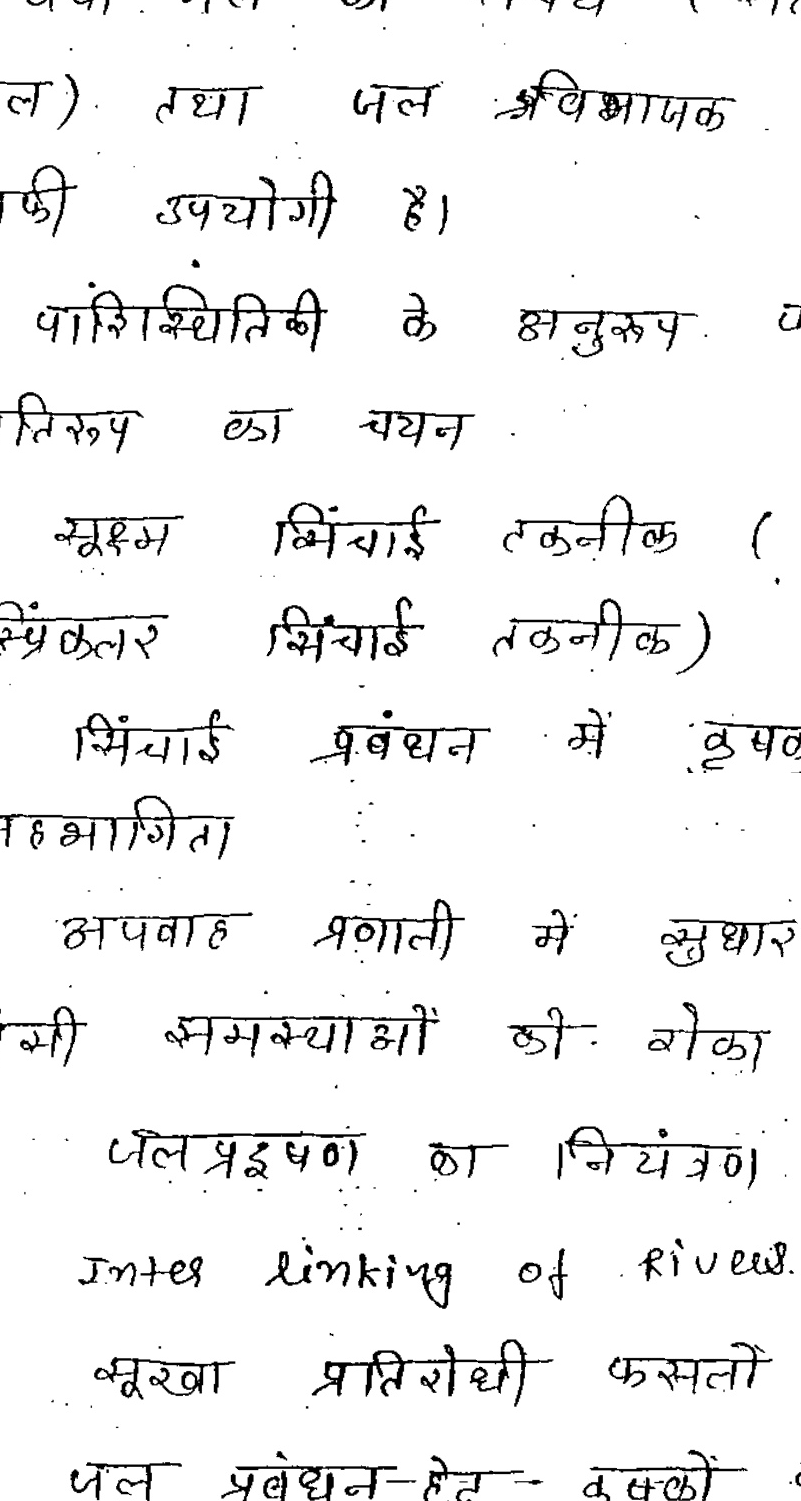 ल) तथा जल विभाजक
उपयोगी है।
पारिस्थितिकी के अनुरूप
का चयन
सूक्ष्म सिंचाई तकनीक (
स्प्रिंकलर सिंचाई तकनीक)
सिंचाई प्रबंधन में कृषक
सहभागिता
अपवाह प्रणाली में सुधार
समस्याओं को रोका
जल प्रदूषण का नियंत्रण
Inter linking of Rivers.
सूखा प्रतिरोधी फसलों
जल प्रबंधन-हेतु-कृषकों